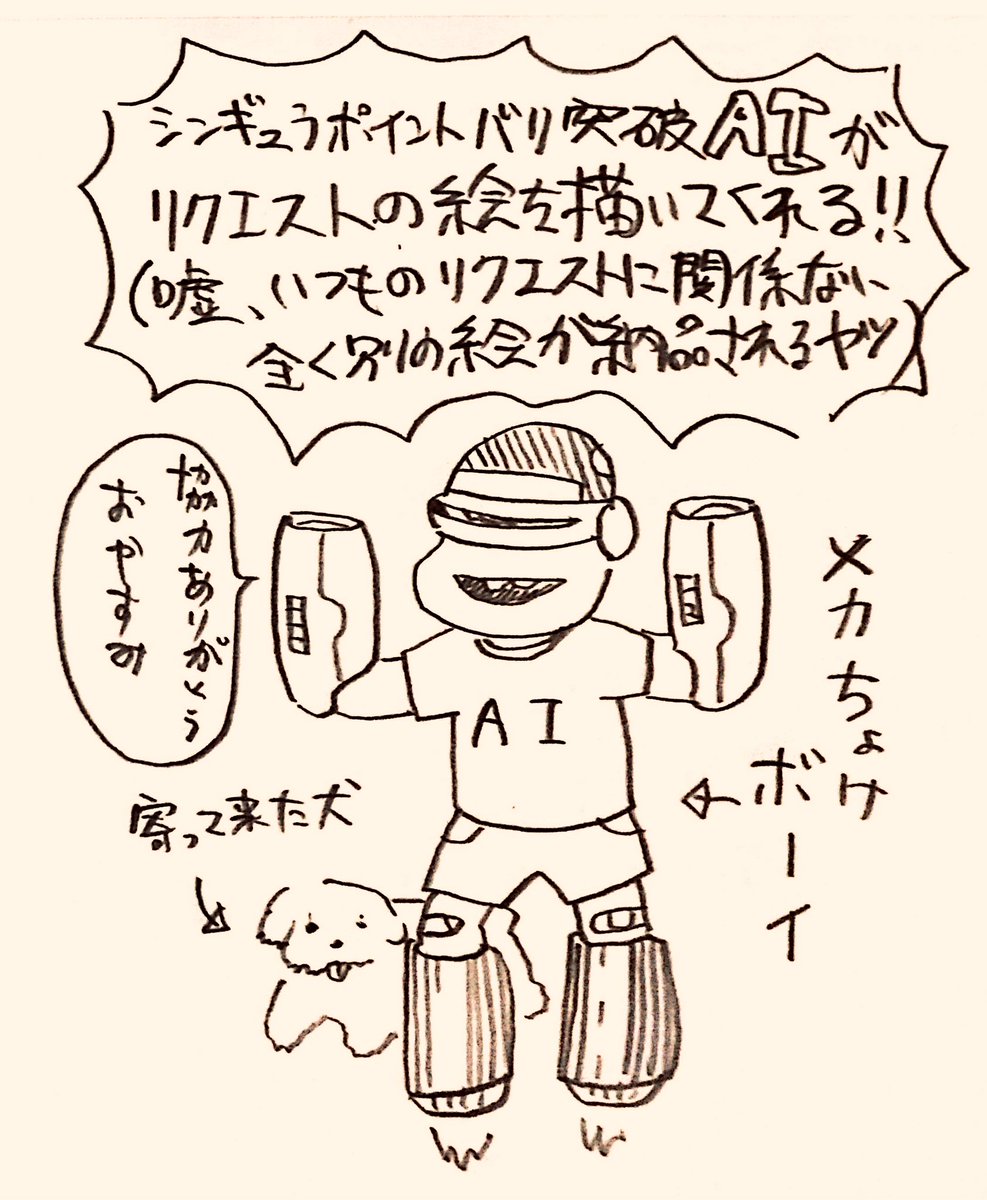 シンギュラポイントバリ突破AIが
リクエストの絵を描いてくれる!!
(嘘、いつものリクエストに関係ない
全く別の絵が納品されるヤツ)
協力ありがとう
おやすみ
メカちょけ
ボーイ
AI
寄って来た犬